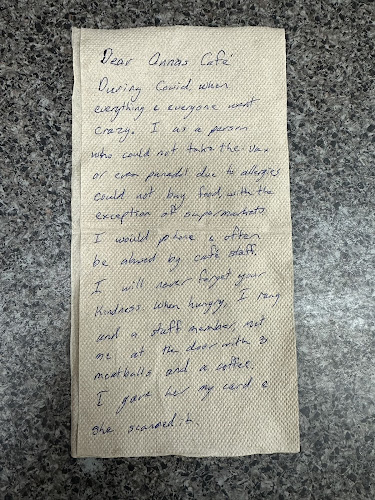 Dear Annas Café
During Covid, when
everything & everyone went
crazy. I as a person
who could not take the vax
or even panadol due to allergies
could not buy food, with the
exception of supermarkets.
I would phone & often
be abused by café staff.
I will never forget your
kindness. When hungry, I rang
and a staff member, met
me at the door with 3
meatballs and a coffee.
I gave her my card &
she scanned it.